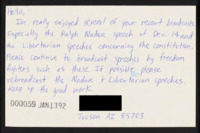 Hello,
I'm really enjoyed several of your recent broadcasts
especially the Ralph Nader speech of Dec. 14 and
the Libertarian speeches concerning the constitution.
Please continue to broadcast speeches by freedom
fighters such as these. If possible, please
rebroadcast the Nader & Libertarian speeches.
Keep up the good work.
000059 JAN 13 92
Tucson AZ 85703